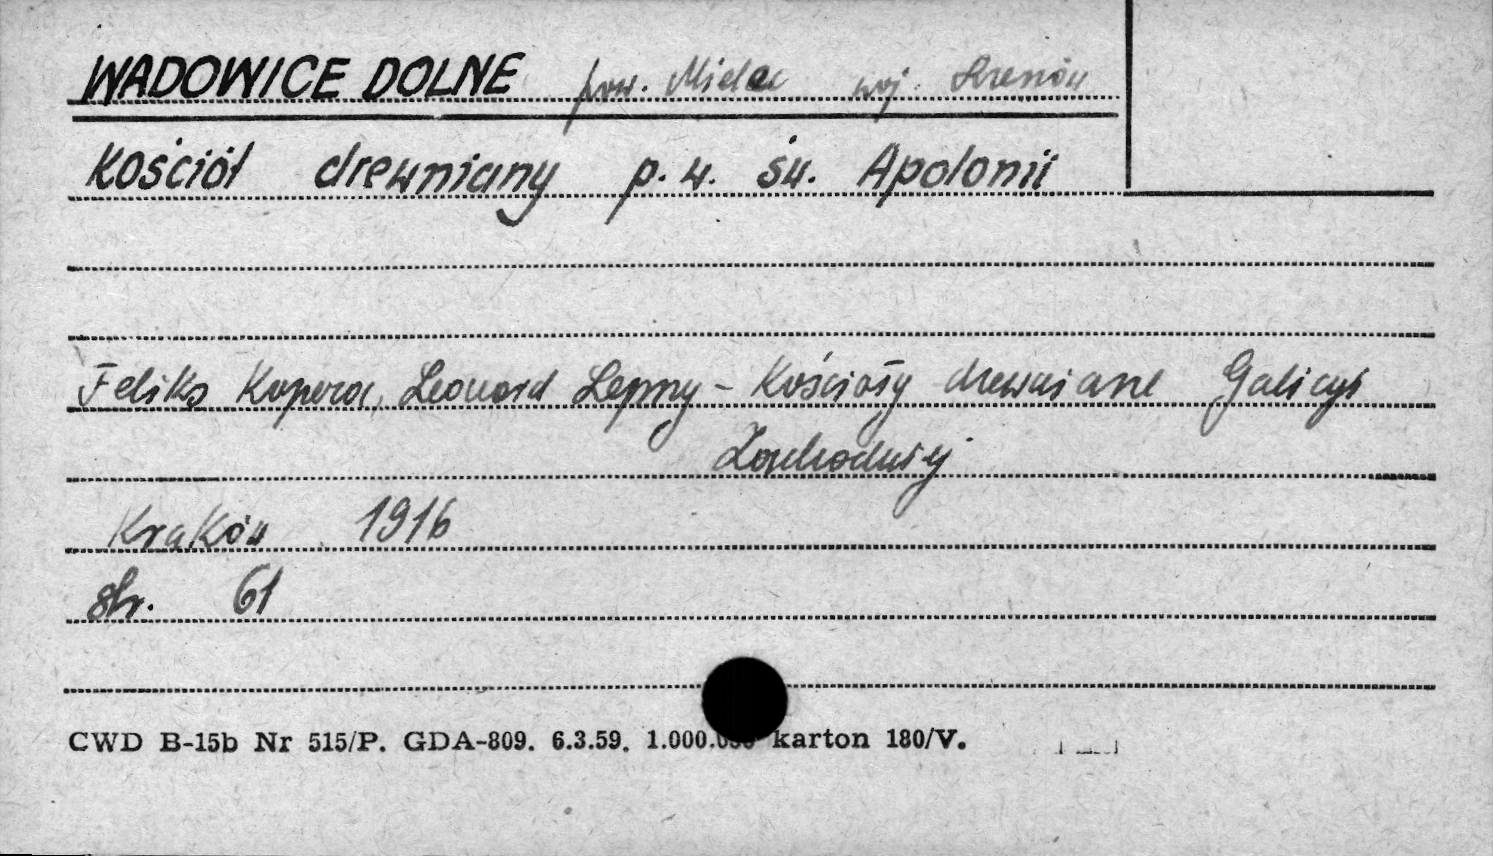 WADOWICE DOLNE pow. Mielec woj. Rzeszów
Kościół drewniany p.w. św. Apolonii
Feliks Kopera, Leonard Lepszy - Kościoły drewniane Galicyi
Zachodniej
Kraków 1916
str. 61
CWD B-15b Nr 515/P. GDA-809. 6.3.59. karton 180/V.